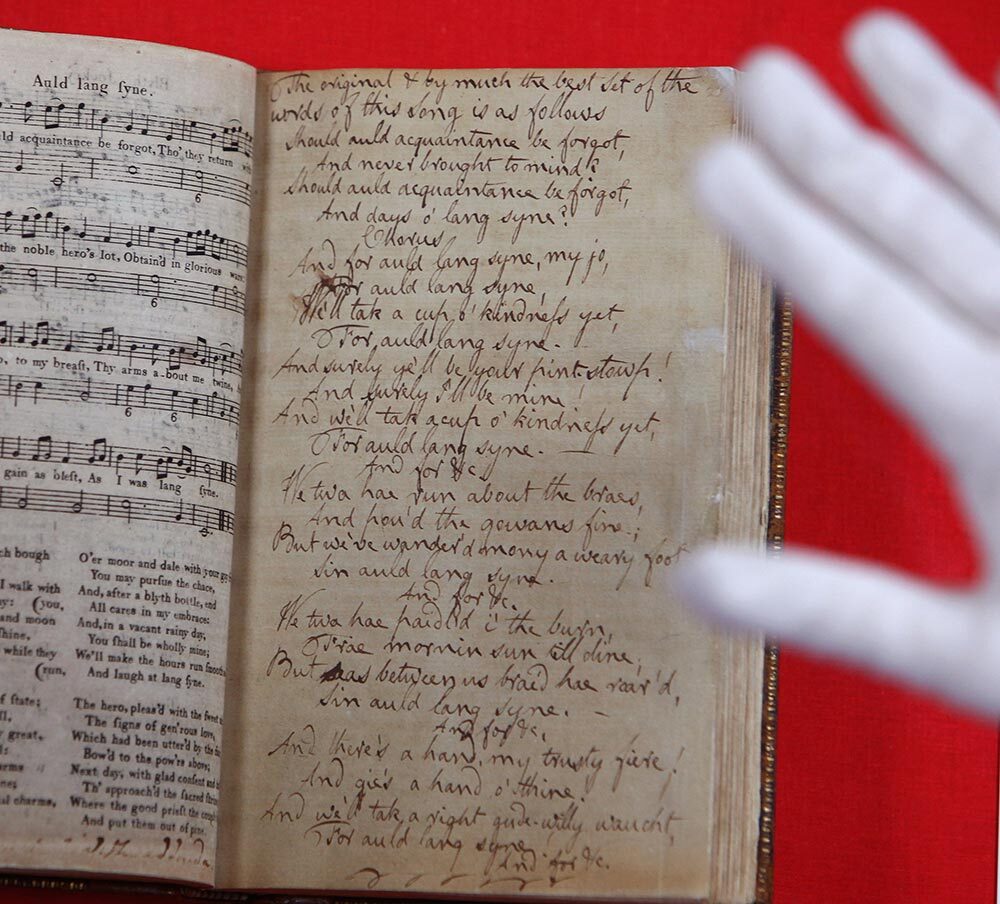 Auld lang ſyne.
ld acquaintance be forgot, Tho' they return
the noble hero's lot, Obtain'd in glorious wars
to my breaſt, Thy arms a-bout me twine,
gain as bleſt, As I was lang ſyne.
ch bough
I walk with
(you,
and moon
ſhine,
while they
(run,
of ſtate;
great,
charms,
O'er moor and dale with your
You may purſue the chace,
And, after a blyth bottle, end
All cares in my embrace:
And, in a vacant rainy day,
You ſhall be wholly mine;
We'll make the hours run ſmooth
And laugh at lang ſyne.
The hero, pleas'd with the ſweet
The ſigns of gen'rous love,
Which had been utter'd by the
Bow'd to the pow'rs above;
Next day, with glad conſent and
Th' approach'd the ſacred
Where the good prieſt the
And put them out of pine.
The original & by much the best set of the
words of this song is as follows
Should auld acquaintance be forgot,
And never brought to mind?
Should auld acquaintance be forgot,
And days o' lang syne?
Chorus
And for auld lang syne, my jo,
For auld lang syne,
We'll tak a cup o' kindneſs yet,
For auld lang syne. —
And surely ye'll be your pint-stowp!
And surely I'll be mine
And we'll tak a cup o' kindneſs yet,
For auld lang syne. —
And for &c
We twa hae run about the braes,
And pou'd the gowans fine;
But we've wander'd mony a weary foot
Sin auld lang syne.
And for &c.
We twa hae paidl'd i' the burn,
Frae mornin sun till dine;
But seas between us braid hae roar'd,
Sin auld lang syne. —
And for &c,
And there's a hand, my trusty fiere!
And gie's a hand o' thine!
And we'll tak a right gude-willy waucht,
For auld lang syne
And for &c.